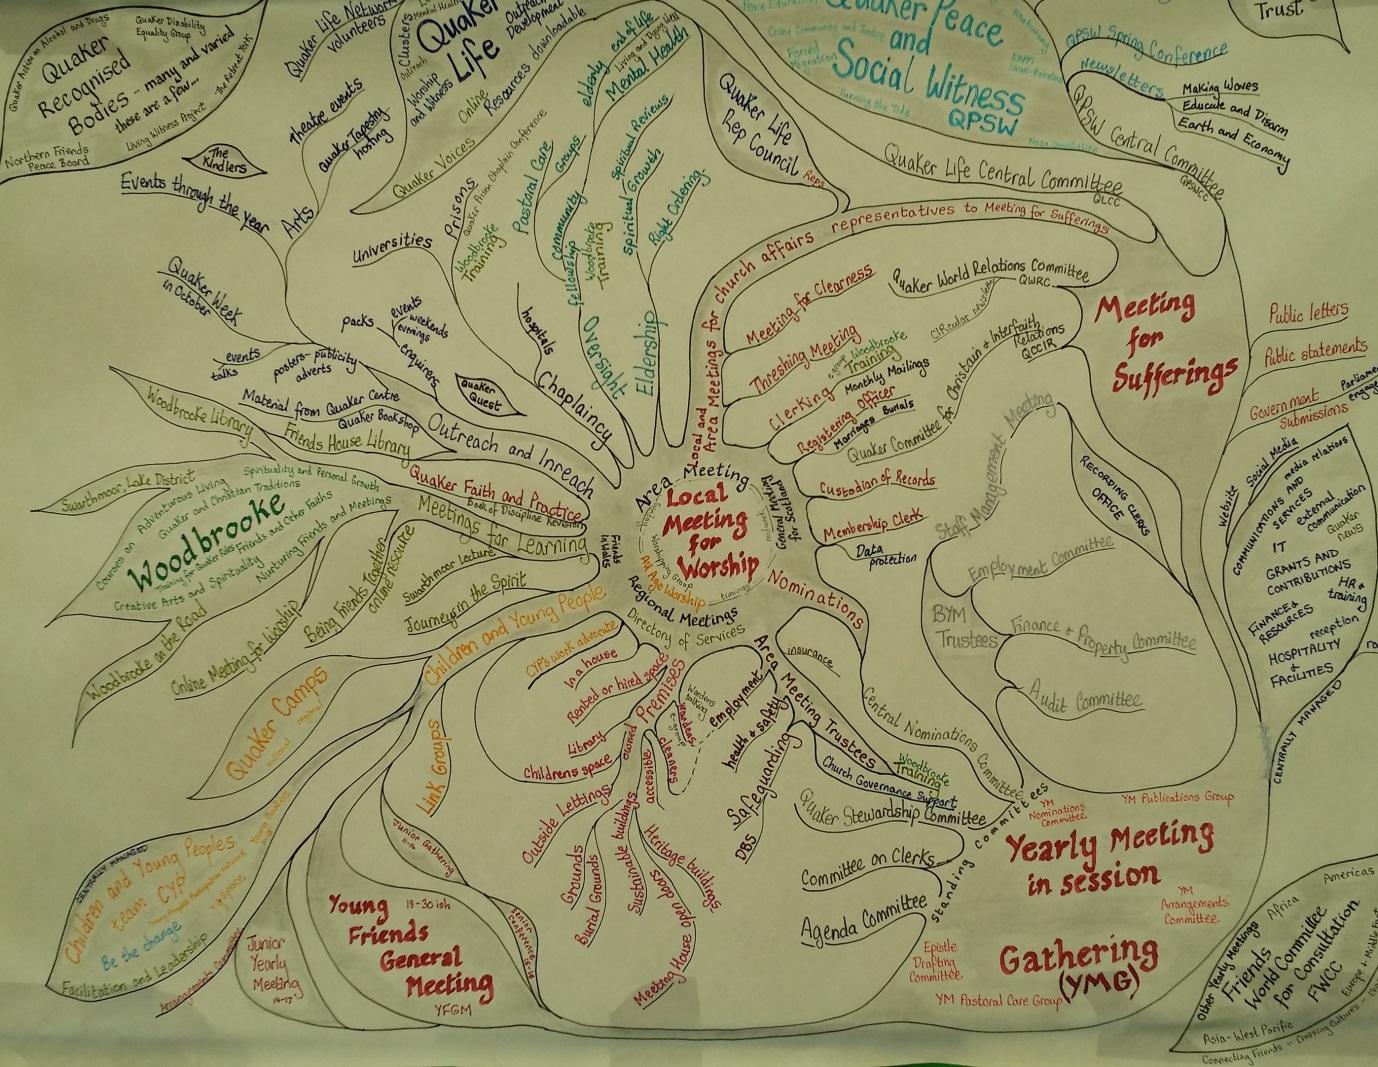 Quaker Action on Alcohol and Drugs
Quaker Disability
Equality Group
Quaker
Recognised
Bodies - many and varied
these are a few...
The Retreat York
Living Witness Project
Northern Friends
Peace Board
The
Kindlers
Events through the year
Arts
Theatre events
Quaker Tapestry
hosting
Quaker Life Network
volunteers
Clusters
Quaker
Life
Outreach
Development
Resources downloadable
Online
Worship
and Witness
Outreach
Quaker Voices
Universities
Prisons
Quaker Prison Chaplain Conference
Woodbrooke
Training
hospitals
Chaplaincy
Pastoral Care
Groups
community
fellowship
Woodbrooke
Training
Oversight
elderly
end of life
Living and Dying Well
Mental Health
Spiritual Reviews
Spiritual Growth
Right Ordering
Eldership
Quaker Life
Rep Council
Reps
Quaker Peace
and
Social Witness
QPSW
Turning the Tide
Crime Community and Justice
Forced
Migration
Quaker Life Central Committee
QLCC
Trust
QPSW Spring Conference
Newsletters
Making Waves
Educate and Disarm
Earth and Economy
QPSW Central Committee
QPSWCC
Local and
Area Meetings for church affairs representatives to Meeting for Sufferings
Meeting for Clearness
Threshing Meeting
Clerking
e-group
Woodbrooke
Training
Monthly Mailings
Registering Officer
Marriages Burials
Quaker World Relations Committee
QWRC
Circular newsletter
Quaker Committee for Christian + Interfaith
Relations
QCCIR
Custodian of Records
Membership Clerk
Data
protection
Meeting
for
Sufferings
Public letters
Public statements
Government
Submissions
Quaker Week
in October
events
talks
posters - publicity
adverts
packs
events
weekends
evenings
enquirers
Quaker
Quest
Material from Quaker Centre
Quaker Bookshop
Outreach and Inreach
Woodbrooke Library
Friends House Library
Quaker Faith and Practice
Book of Discipline Revision
Meetings for Learning
Swarthmoor, Lake District
Woodbrooke
Courses on Adventurous Living
Spirituality and Personal Growth
Quaker and Christian Traditions
Training for Quaker Roles
Friends and Other Faiths
Creative Arts and Spirituality
Nurturing Friends and Meetings
Woodbrooke on the Road
Online Meeting for Worship
Being Friends Together
online resource
Swarthmoor Lecture
Journey in the Spirit
Area Meeting
Local
Meeting
for
Worship
Worshipping Group
All Age Worship
timings
General Meeting
for Scotland
Friends
in Wales
Regional Meetings
Directory of Services
Nominations
Central Nominations Committee
Woodbrooke
Training
insurance
Area Meeting Trustees
Church Governance Support
employment
health + safety
Safeguarding
DBS
Quaker Stewardship Committee
Committee on Clerks
Agenda Committee
standing committees
Staff Management Meeting
RECORDING CLERKS
OFFICE
Employment Committee
BYM
Trustees
Finance + Property Committee
Audit Committee
website
Social Media
COMMUNICATIONS AND
SERVICES
media relations
external
communication
Quaker
news
IT
GRANTS AND
CONTRIBUTIONS
HR +
training
FINANCE +
RESOURCES
reception
HOSPITALITY
+
FACILITIES
CENTRALLY MANAGED
Children and Young People
CYP's work advocate
Quaker Camps
Link Groups
Junior Gathering
Senior Conference
CENTRALLY MANAGED
Children and Young Peoples
team CYP
Be the change
Facilitation and Leadership
Arrangements Committee
Junior
Yearly
Meeting
14-17
Young
Friends
General
Meeting
18-30 ish
YFGM
Premises
In a house
Rented or hired space
owned
Library
Childrens space
Outside Lettings
Grounds
Burial Grounds
Sustainable buildings
accessible
Heritage buildings
open doors
Meeting House
Wardens
talking
wardens
e-group
cleaners
YM
Nominations
Committee
YM Publications Group
Yearly Meeting
in session
YM
Arrangements
Committee
Gathering
(YMG)
Epistle
Drafting
Committee
YM Pastoral Care Group
Other Yearly Meetings
Africa
Americas
Friends
World Committee
for Consultation
FWCC
Asia-West Pacific
Europe + Middle East
Connecting Friends - Crossing Cultures